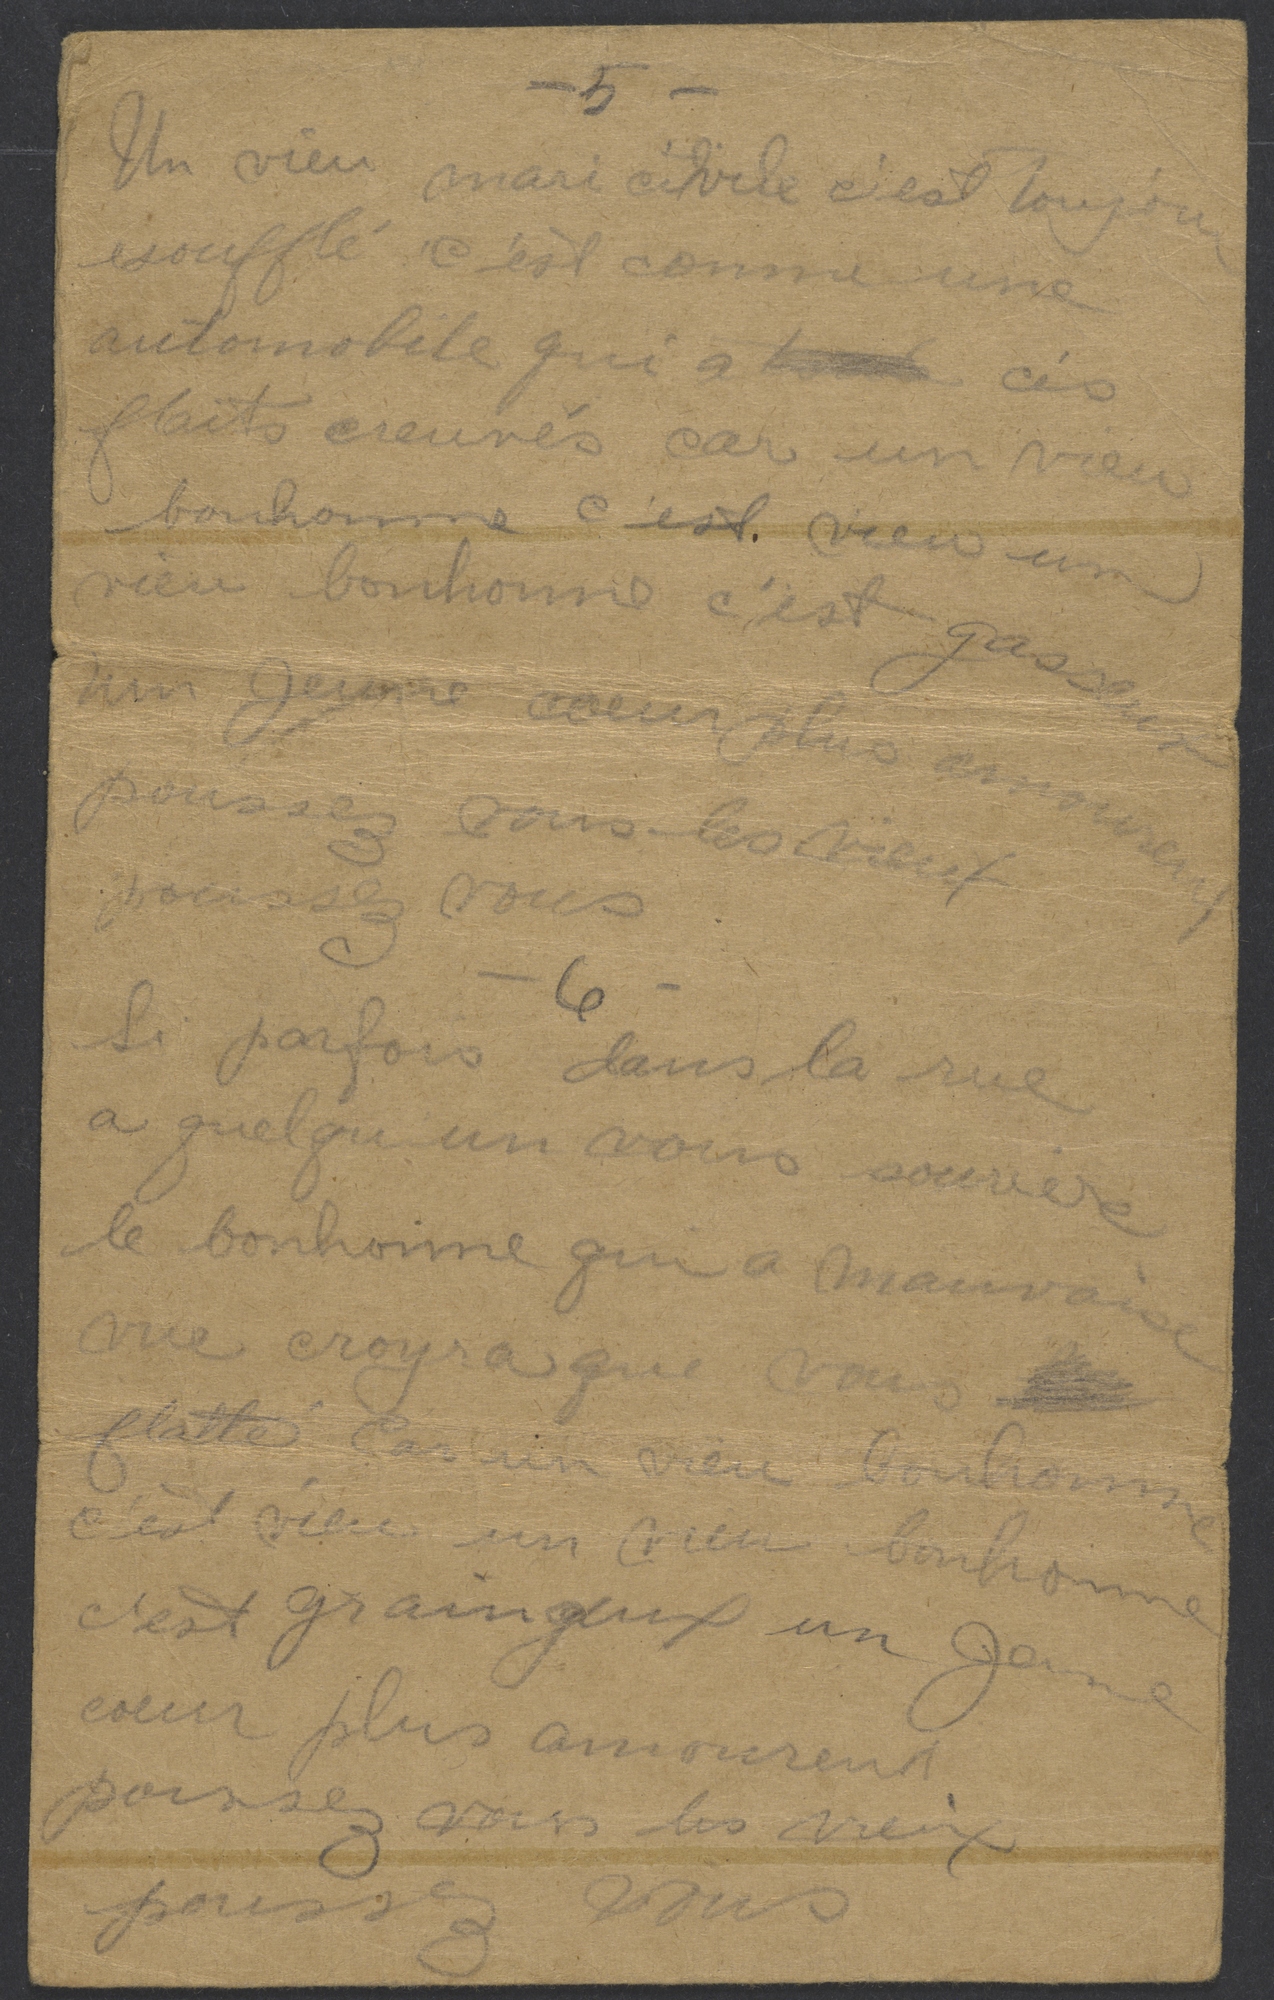 -5-
Un vieu mari c'est toujour
esoufflé c'est comme une
automobile qui a cés
flaits creuvés car un vieu
bonhomme c'est. vieu un
vieu bonhomme c'est gasseux
un Jeune coeur plus amoureux
poussez vous les vieux
poussez vous
-6-
Si parfois dans la rue
a quelqu un vous souriéz
le bonhomme qui a mauvaise
vue croyra que vous
flatté Car un vieu bonhomme
c'est vieu un vieu bonhomme
c'est graingeux un Jeune
coeur plus amoureux
poussez vous les vieux
poussez vous